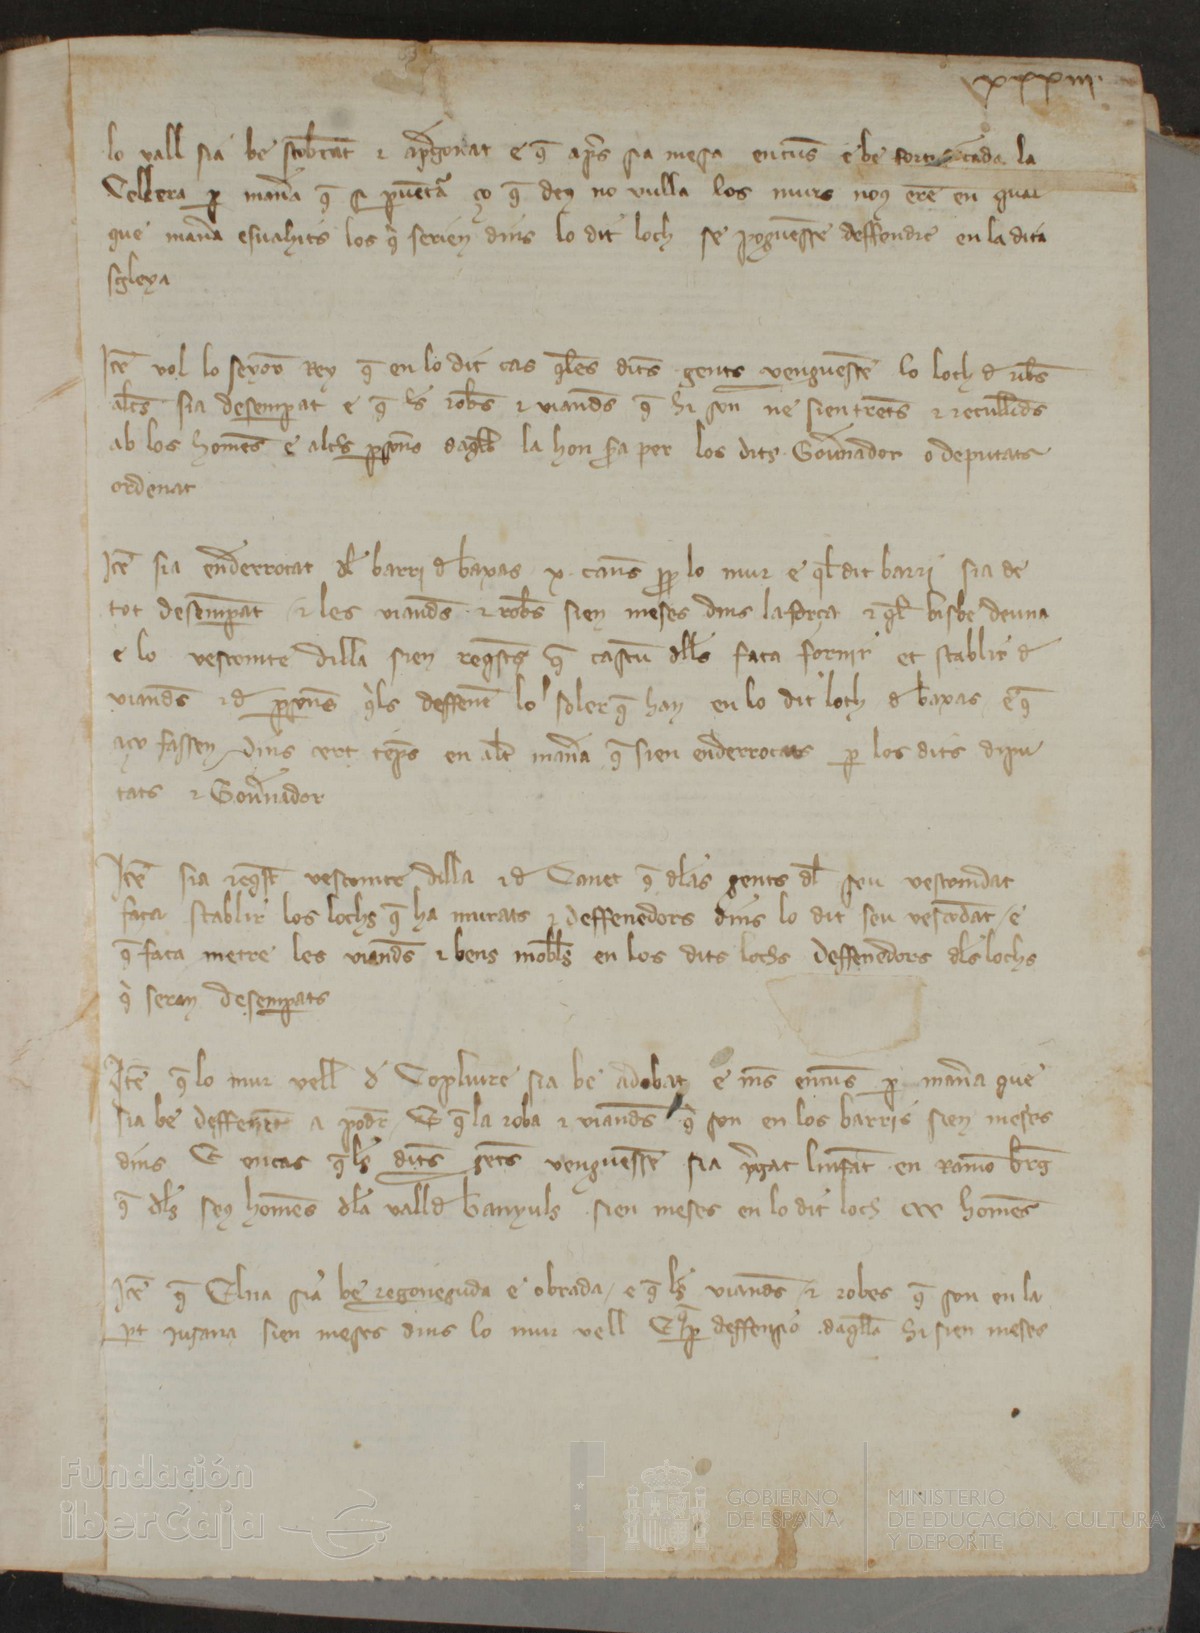 xxxiii.
lo vall sia be scobrat e apregonat e q̃ apres sia mesa encus e be fortificada la
Cellera p manãa q̃ si pventa ço q̃ deu no vulla los murs noy ere en qual
que manãa esvahits los q̃ serien dins lo dit loch se poguesse deffendre en la dita
sgleya
Itẽ vol lo senyor Rey q̃ en lo dit cas q̃les dites gents venguessẽ lo loch d ribes
altes sia desemparat e q̃ les robes e viandes q̃ hi son ne sien tretes e recullides
ab los homẽs e altres psones daq̃ll la hon sia per los dits Govnador o deputats
ordenat
Itẽ sia enderrocat del barri d baxas x canes pp lo mur e q̃l dit barri sia de
tot desemparat e les viandes e robes sien meses dins la força e q̃l bisbe deuna
e lo vescomte dilla sien reqsts q̃ cascũ dells faca fornir et stablir d
viandes e d psones q̃ls deffene lo soler q̃ han en lo dit loch d baxas e q̃
açò fassen dins cert temps en altra manãa q̃ sien enderrocats p los dits dipu
tats e Govnador
Itẽ sia reqst vescomte dilla e d Canet q̃ dles gents dl seu vescomdat
faca stablir los lochs q̃ ha murats e deffenedors dins lo dit seu vescõdat / e
q̃ faca metre les viandes e bens mobles en los dits lochs deffenedors dls lochs
q̃ seran desemparats
Itẽ q̃ lo mur vell d Copliure sia be adobat e mes encus p manãa que
sia be deffenent a poder E q̃ la roba e viandes q̃ son en los barris sien meses
dins E en cas q̃ les dites gents venguessẽ sia pgat linfant en Ramo breg
q̃ dls seus homẽs dla vall d banyuls sien meses en lo dit loch cxx homẽs
Itẽ q̃ Elna sia be regoneguda e obrada / e q̃ les viandes e robes q̃ son en la
pt jusana sien meses dins lo mur vell E q̃ p deffensio daq̃lla hi sien meses
Fundación
iberCaja
GOBIERNO
DE ESPAÑA
MINISTERIO
DE EDUCACIÓN, CULTURA
Y DEPORTE